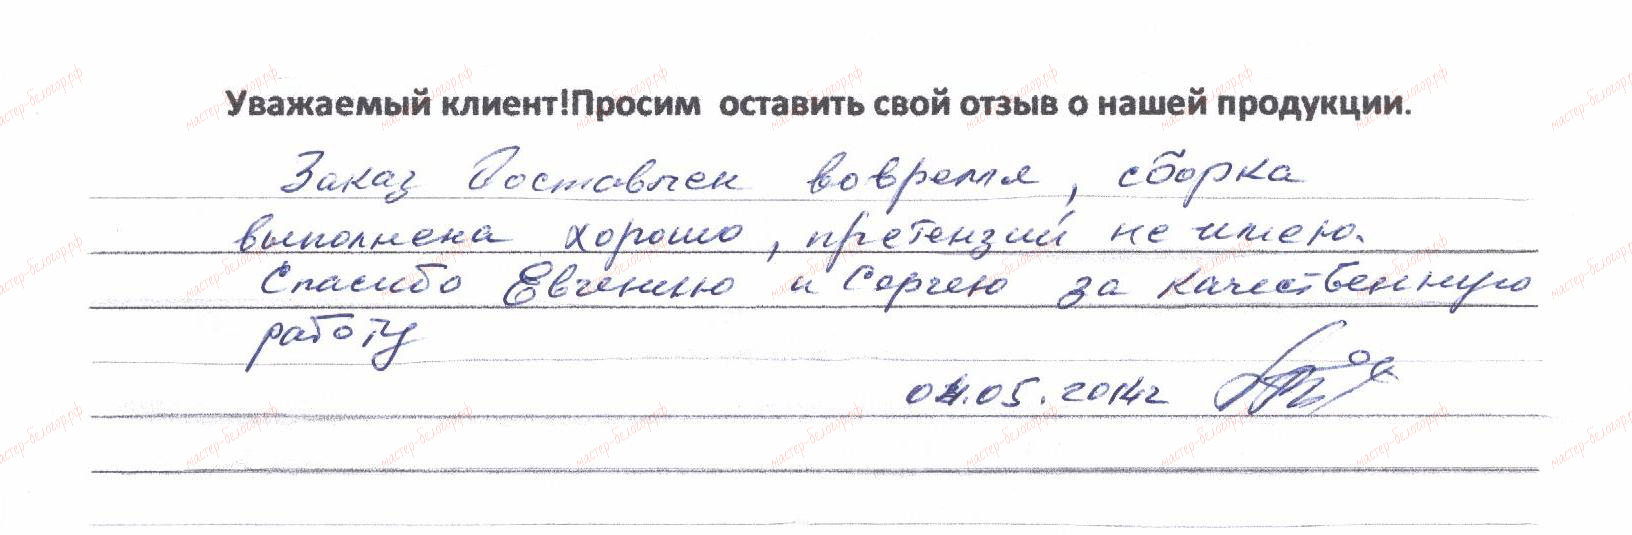 Уважаемый клиент!Просим оставить свой отзыв о нашей продукции.
Заказ доставлен вовремя, сборка
выполнена хорошо, претензий не имею.
Спасибо Евгению и Сергею за качественную
работу
04.05.2014г
мастер-белогор.рф